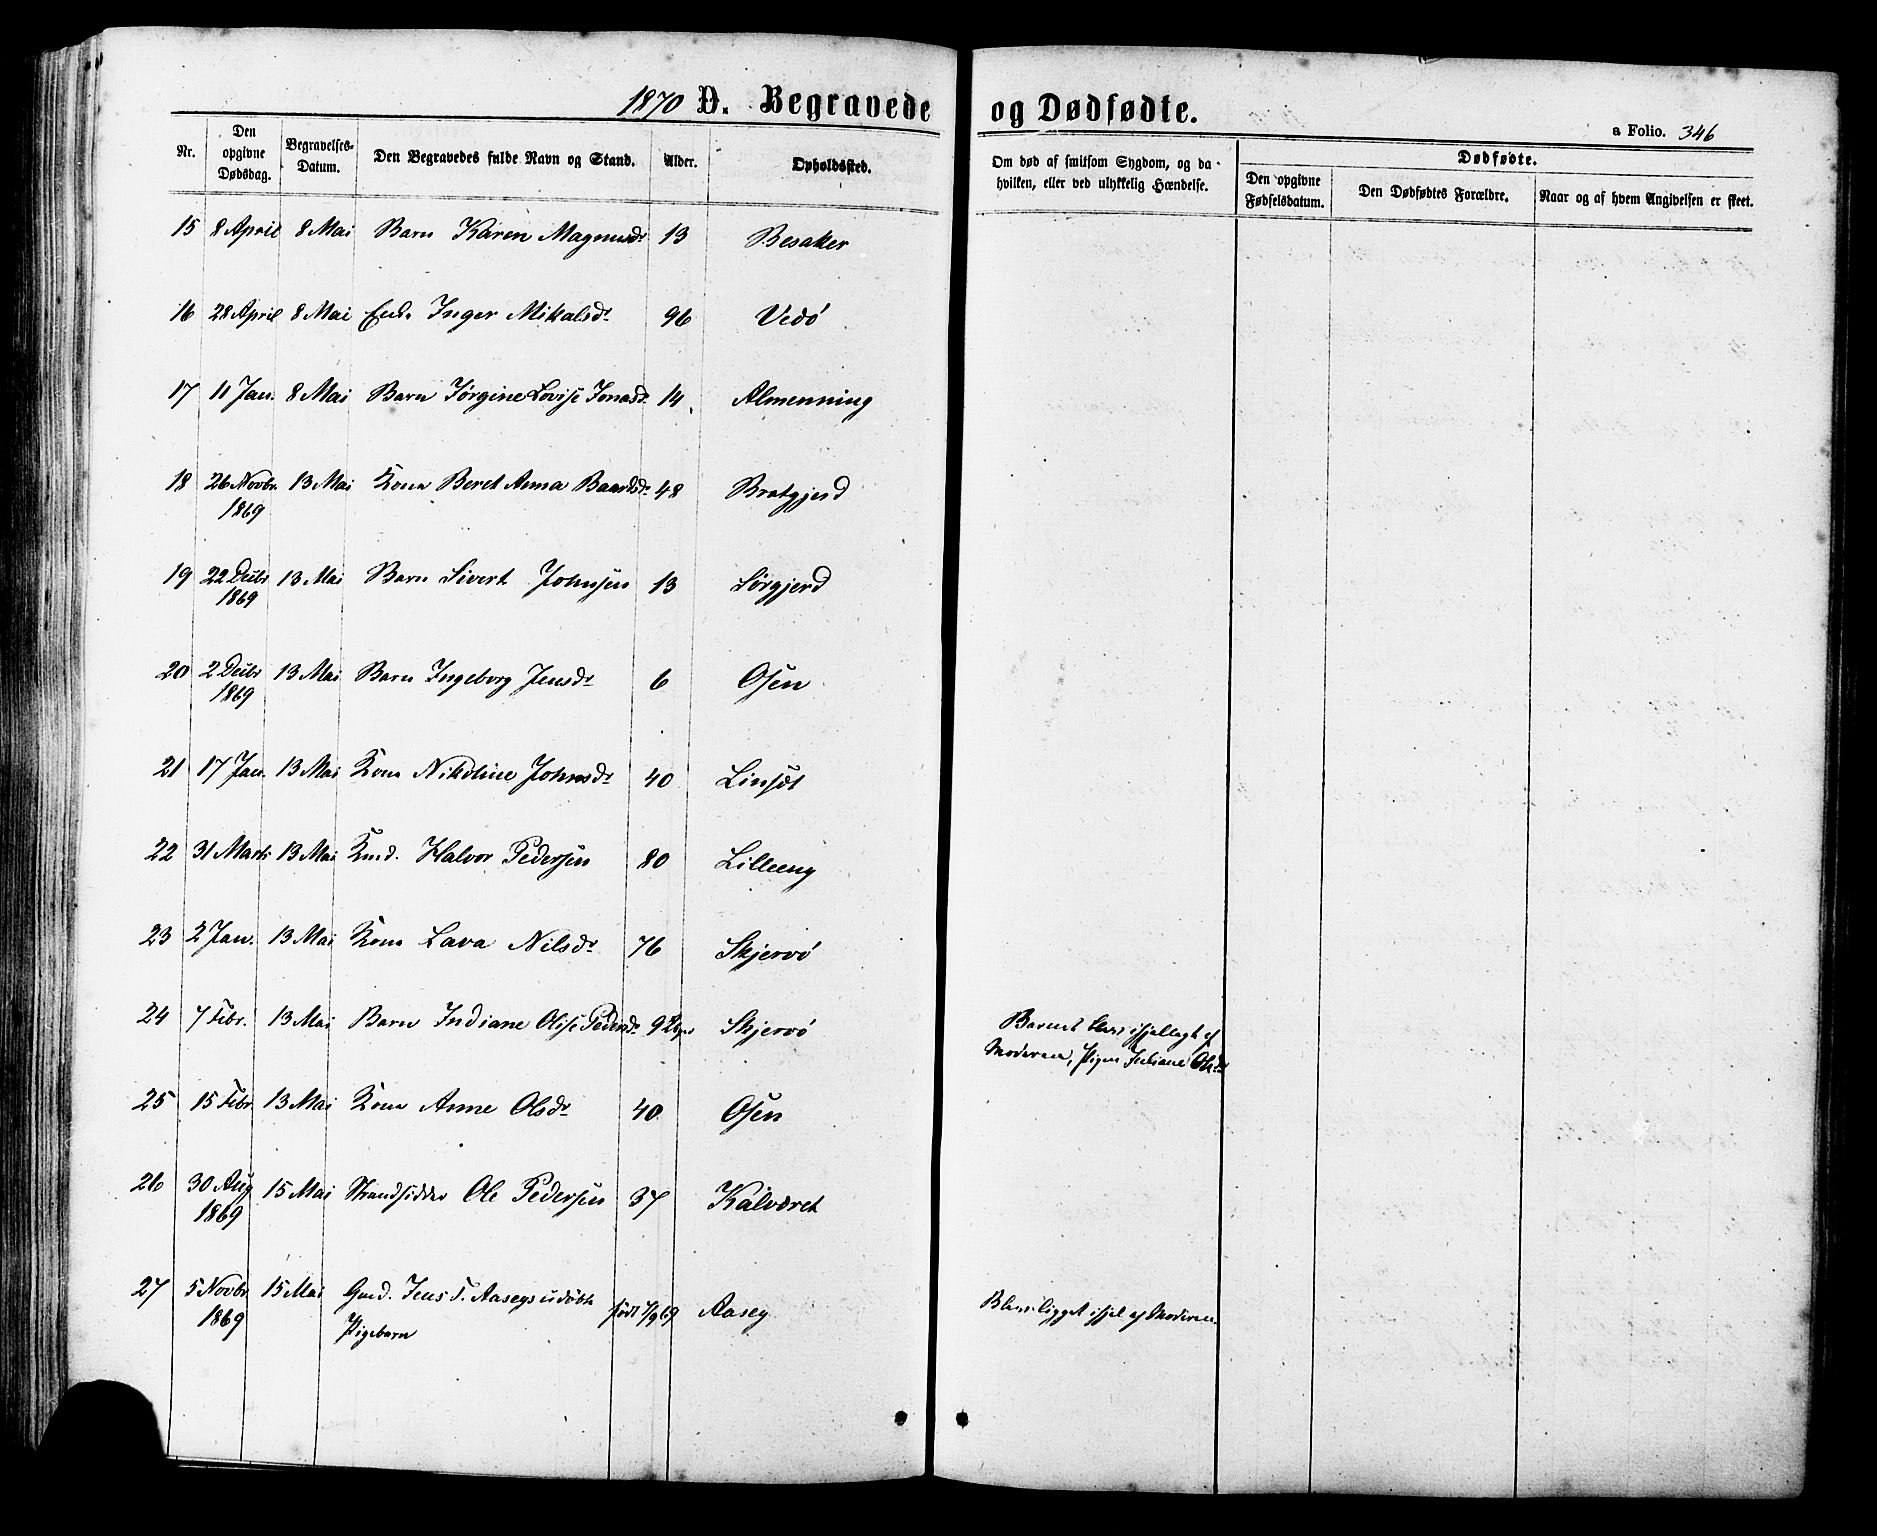 1870 D. Begravede og Dødfødte.
a Folio. 346
Nr. | Den opgivne Dødsdag. | Begravelses-Datum. | Den Begravedes fulde Navn og Stand. | Alder. | Opholdssted. | Om død af sæltsom Sygdom, og da hvilken, eller ved ulykkelig Hændelse. | Dødfødte. | Den opgivne Fødselsdatum. | Den Dødfødtes Forældre. | Naar og af hvem Angivelsen er skeet.
15 8 April 8 Mai Barn Karen Magnusdr 13 Besaker
16 28 April 8 Mai Enke Inger Mikalsdr 96 Vedø
17 11 Jan. 8 Mai Barn Jørgine Lovise Jonasdr 14 Almenning
18 26 Novbr. 1869 13 Mai Kone Beret Anna Baardsdr 48 Bratgjerd
19 22 Decbr 1869 13 Mai Barn Sivert Johnsen 13 Sørgjerd
20 2 Decbr 1869 13 Mai Barn Ingeborg Jensdr 6 Osen
21 17 Jan. 13 Mai Kone Nikoline Johnsdr 40 Linset
22 31 Marts 13 Mai Hmd. Halvor Pedersen 80 Lilleeng
23 2 Jan. 13 Mai Kone Lava Nilsdr 76 Skjervø
24 7 Febr. 13 Mai Barn Indiane Olise Pedersdr 9 Dage Skjervø
Barnet blev ihjellagt af
Moderen, Pigen Juliane Olsdr
25 15 Febr 13 Mai Kone Anne Olsdr 40 Osen
26 30 Aug 1869 15 Mai Strandsidder Ole Pedersen 37 Kalværet
27 5 Novbr 1869 15 Mai Gmd. Jens T. Aasegs udøbte Pigebarn født 7/9 69 Aaseg
Blev ligget ihjel af Moderen